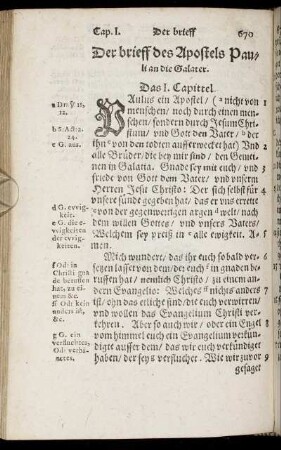 Cap. I. Der brieff 670
Der brieff des Apostels Pau-
li an die Galater.
Das I. Capittel.
PAulus ein Apostel/ (nicht von 1
menschen/ noch durch einen men-
schen/ sondern durch Jesum Chri-
stum/ und Gott den Vater/ der
ihn von den todten aufferwecket hat) Und 2
alle Brüder/ die bey mir sind/ den Gemei-
nen in Galatia. Gnade sey mit euch/ und 3
friede von Gott dem Vater/ und unsers
Herren Jesu Christo: Der sich selbst für 4
unsere sünde gegeben hat/ das er uns errette
von der gegenwertigen argen welt/ nach
dem willen Gottes/ und unsers Vaters/
Welchem sey preiß in alle ewigkeit. A- 5
men.
Mich wundert/ das ihr euch so bald ver- 6
sezen lasset von dem/ der euch in gnaden be-
ruffen hat/ nemlich Christo/ zu einem an-
dern Evangelio: Welches nichts anders 7
ist/ ohn das etliche sind/ die euch verwirren/
und wollen das Evangelium Christi ver-
kehren. Aber so auch wir/ oder ein Engel 8
vom himmel euch ein Evangelium verkün-
digte ausser dem/ das wir euch verkündiget
haben/ der sey verfluchet. Wie wir zuvor 9
gesaget
b S. Acto.
c G. aus.
d G. ewig-
keit.
e G. die e-
wigkeiten
der ewig-
keiten.
f Od: in
Christi gna-
de beruffen
hat, zu ei-
nem &c.
g G. ein
verfluchtes,
Od: verba-
netes.